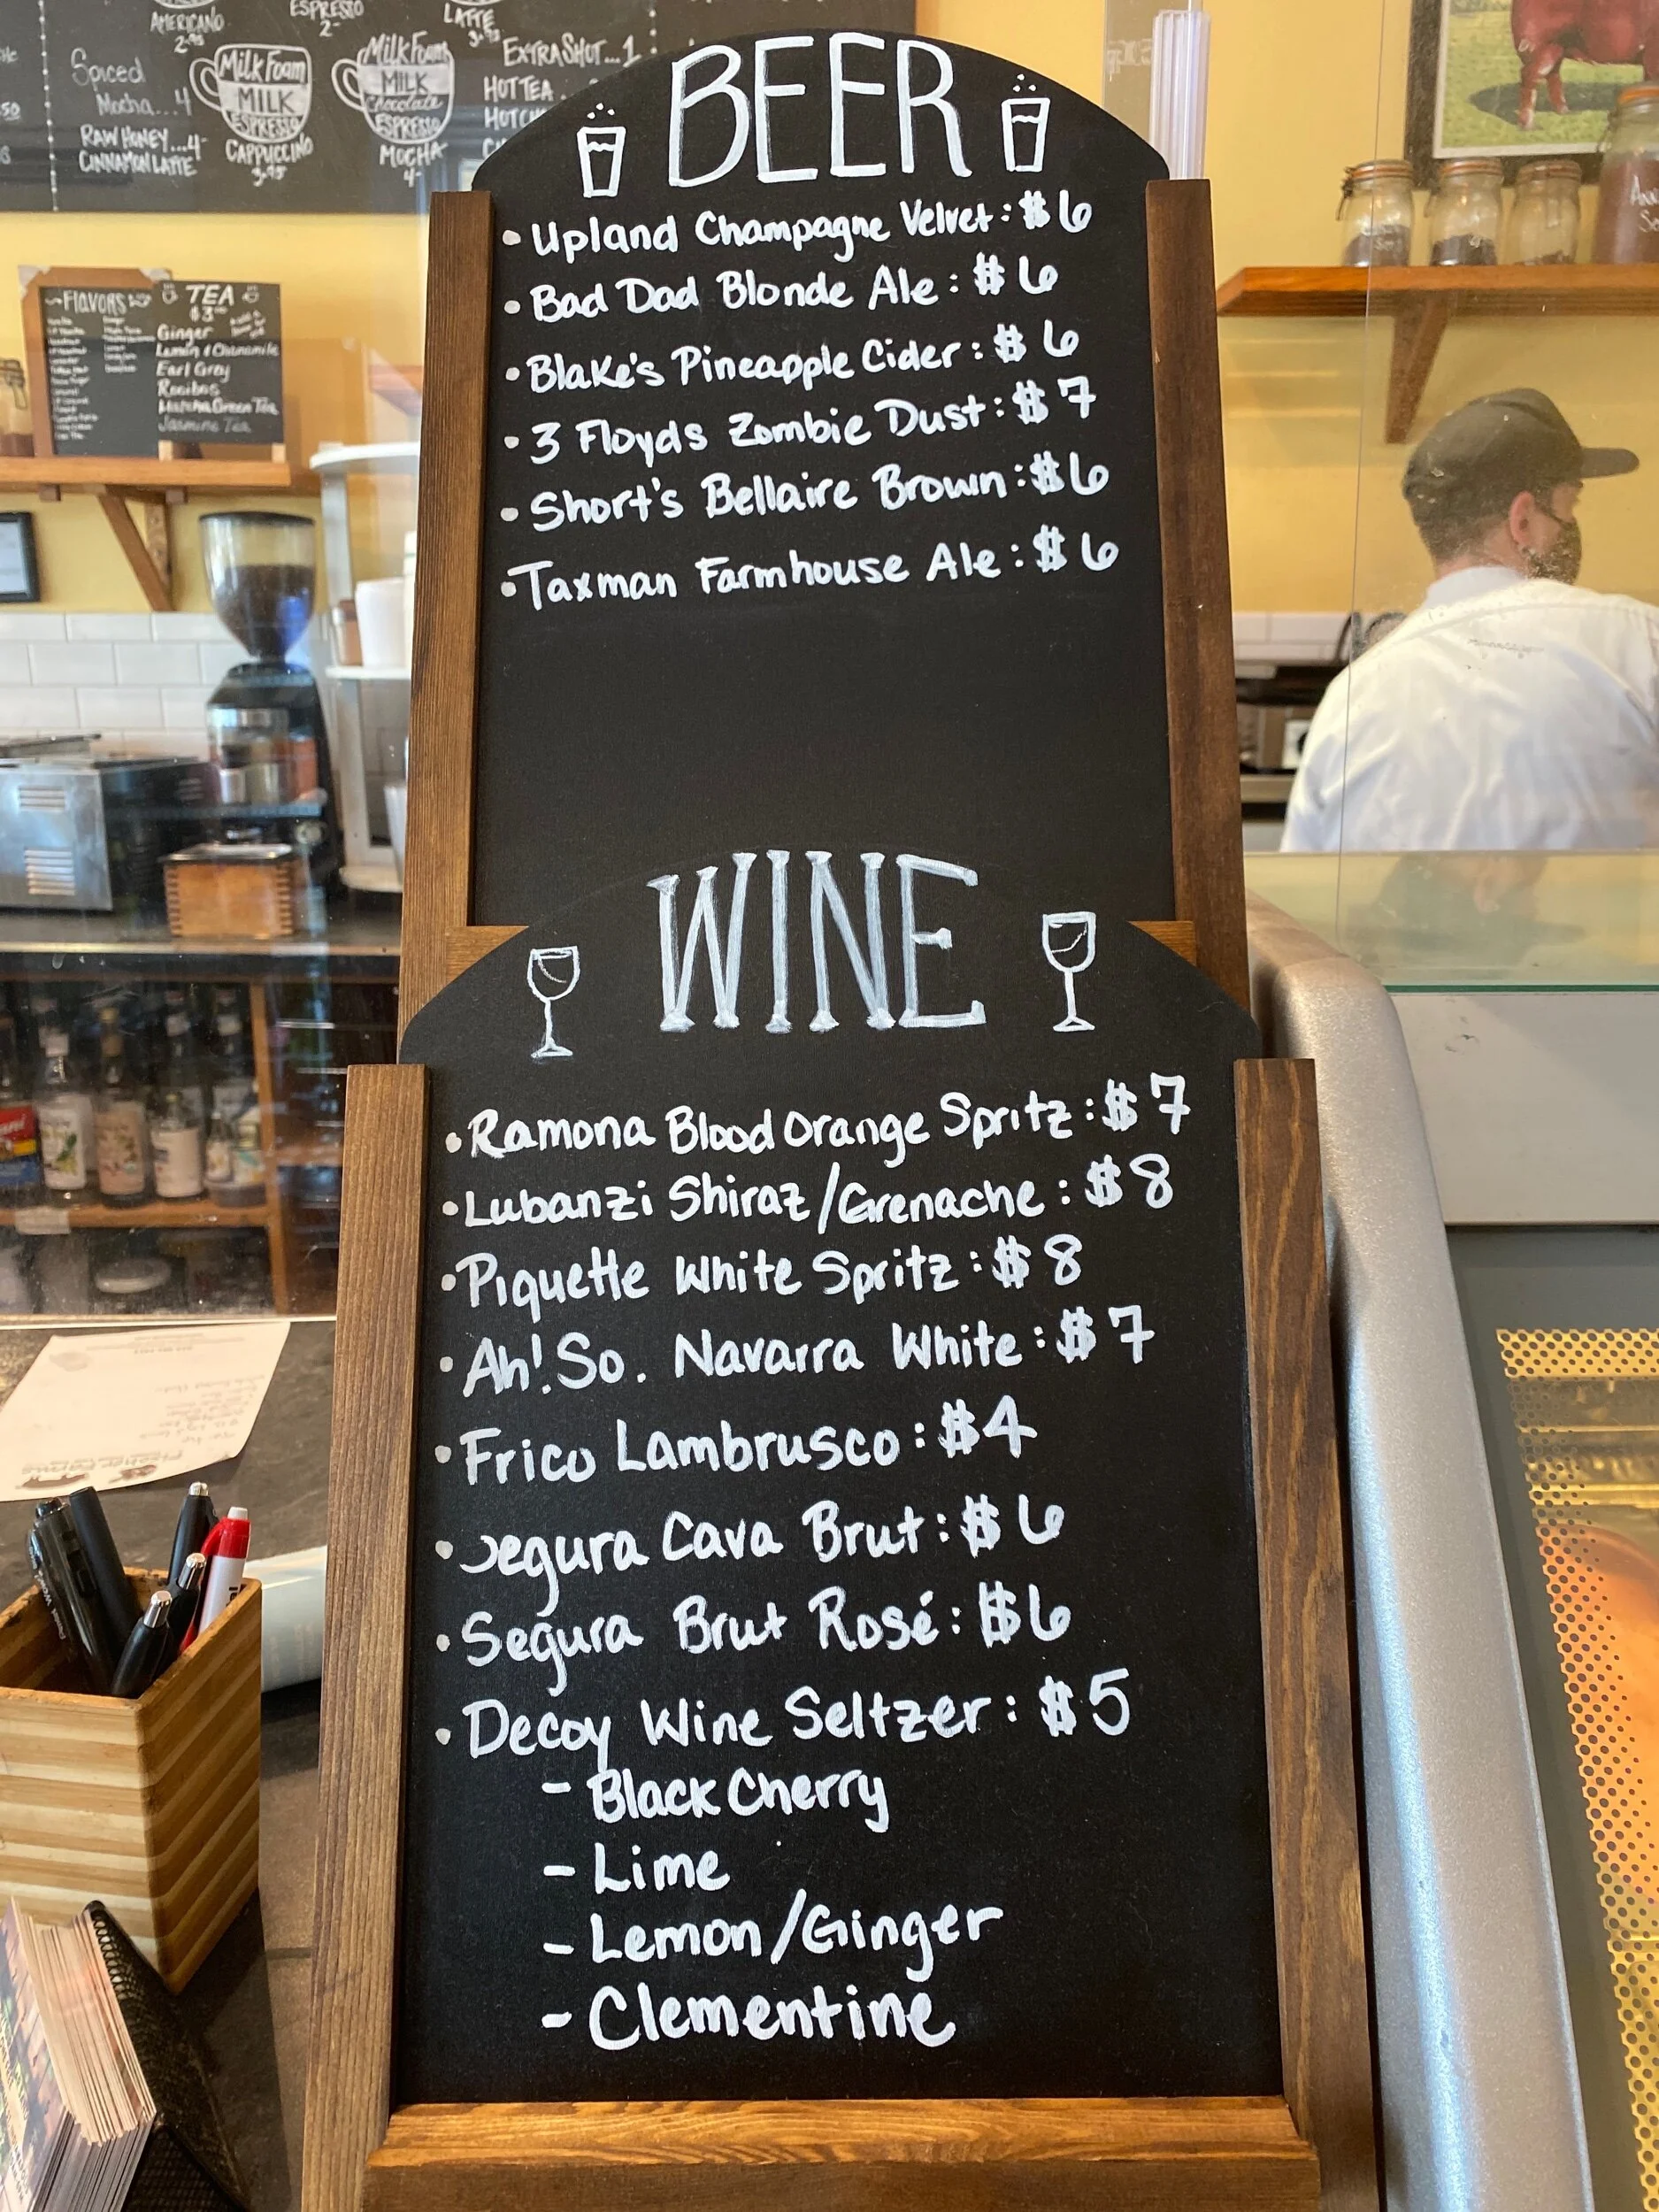 AMERICANO
2.95
ESPRESSO
2-
LATTE
3.95
Spiced
Mocha...4
RAW HONEY...4-
CINNAMON LATTE
Milk Foam
MILK
ESPRESSO
CAPPUCCINO
3.95
Milk Foam
MILK
Chocolate
ESPRESSO
MOCHA
4-
EXTRA SHOT...1
HOT TEA
BEER
• Upland Champagne Velvet: $6
• Bad Dad Blonde Ale: $6
• Blake's Pineapple Cider: $6
• 3 Floyds Zombie Dust: $7
• Short's Bellaire Brown: $6
• Taxman Farmhouse Ale: $6
~Flavors~
TEA
$3
Ginger
Lemon & Chamomile
Earl Grey
Rooibos
Matcha Green Tea
Jasmine Tea
WINE
• Ramona Blood Orange Spritz: $7
• Lubanzi Shiraz/Grenache: $8
• Piquette White Spritz: $8
• Ah! So. Navarra White: $7
• Frico Lambrusco: $4
• Segura Cava Brut: $6
• Segura Brut Rosé: $6
• Decoy Wine Seltzer: $5
- Black Cherry
- Lime
- Lemon/Ginger
- Clementine